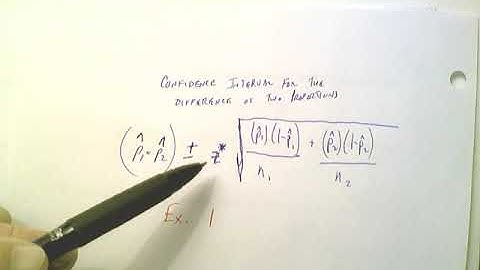 CONFIDENCE INTERVAL FOR THE
DIFFERENCE OF TWO PROPORTIONS
(p̂₁ - p̂₂) ± z* √((p̂₁)(1-p̂₁)/n₁ + (p̂₂)(1-p̂₂)/n₂)
Ex.. 1